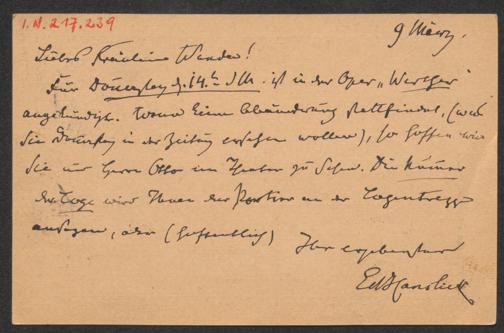 I.N. 217.239
9 März.
Liebes Fräulein Wanda!
Für Donnerstag d. 14.ᵗ d. M. ist in der Oper „Werther"
angekündigt. Wenn keine Abänderung stattfindet, (was
Sie Dienstag in der Zeitung ersehen wollen), so hoffen wir
Sie und Herrn Otto im Theater zu sehen. Die Nummer
der Loge wird Ihnen der Portier an der Logentreppe
ansagen, oder (hoffentlich)
Ihr ergebenster
Ed Hanslick